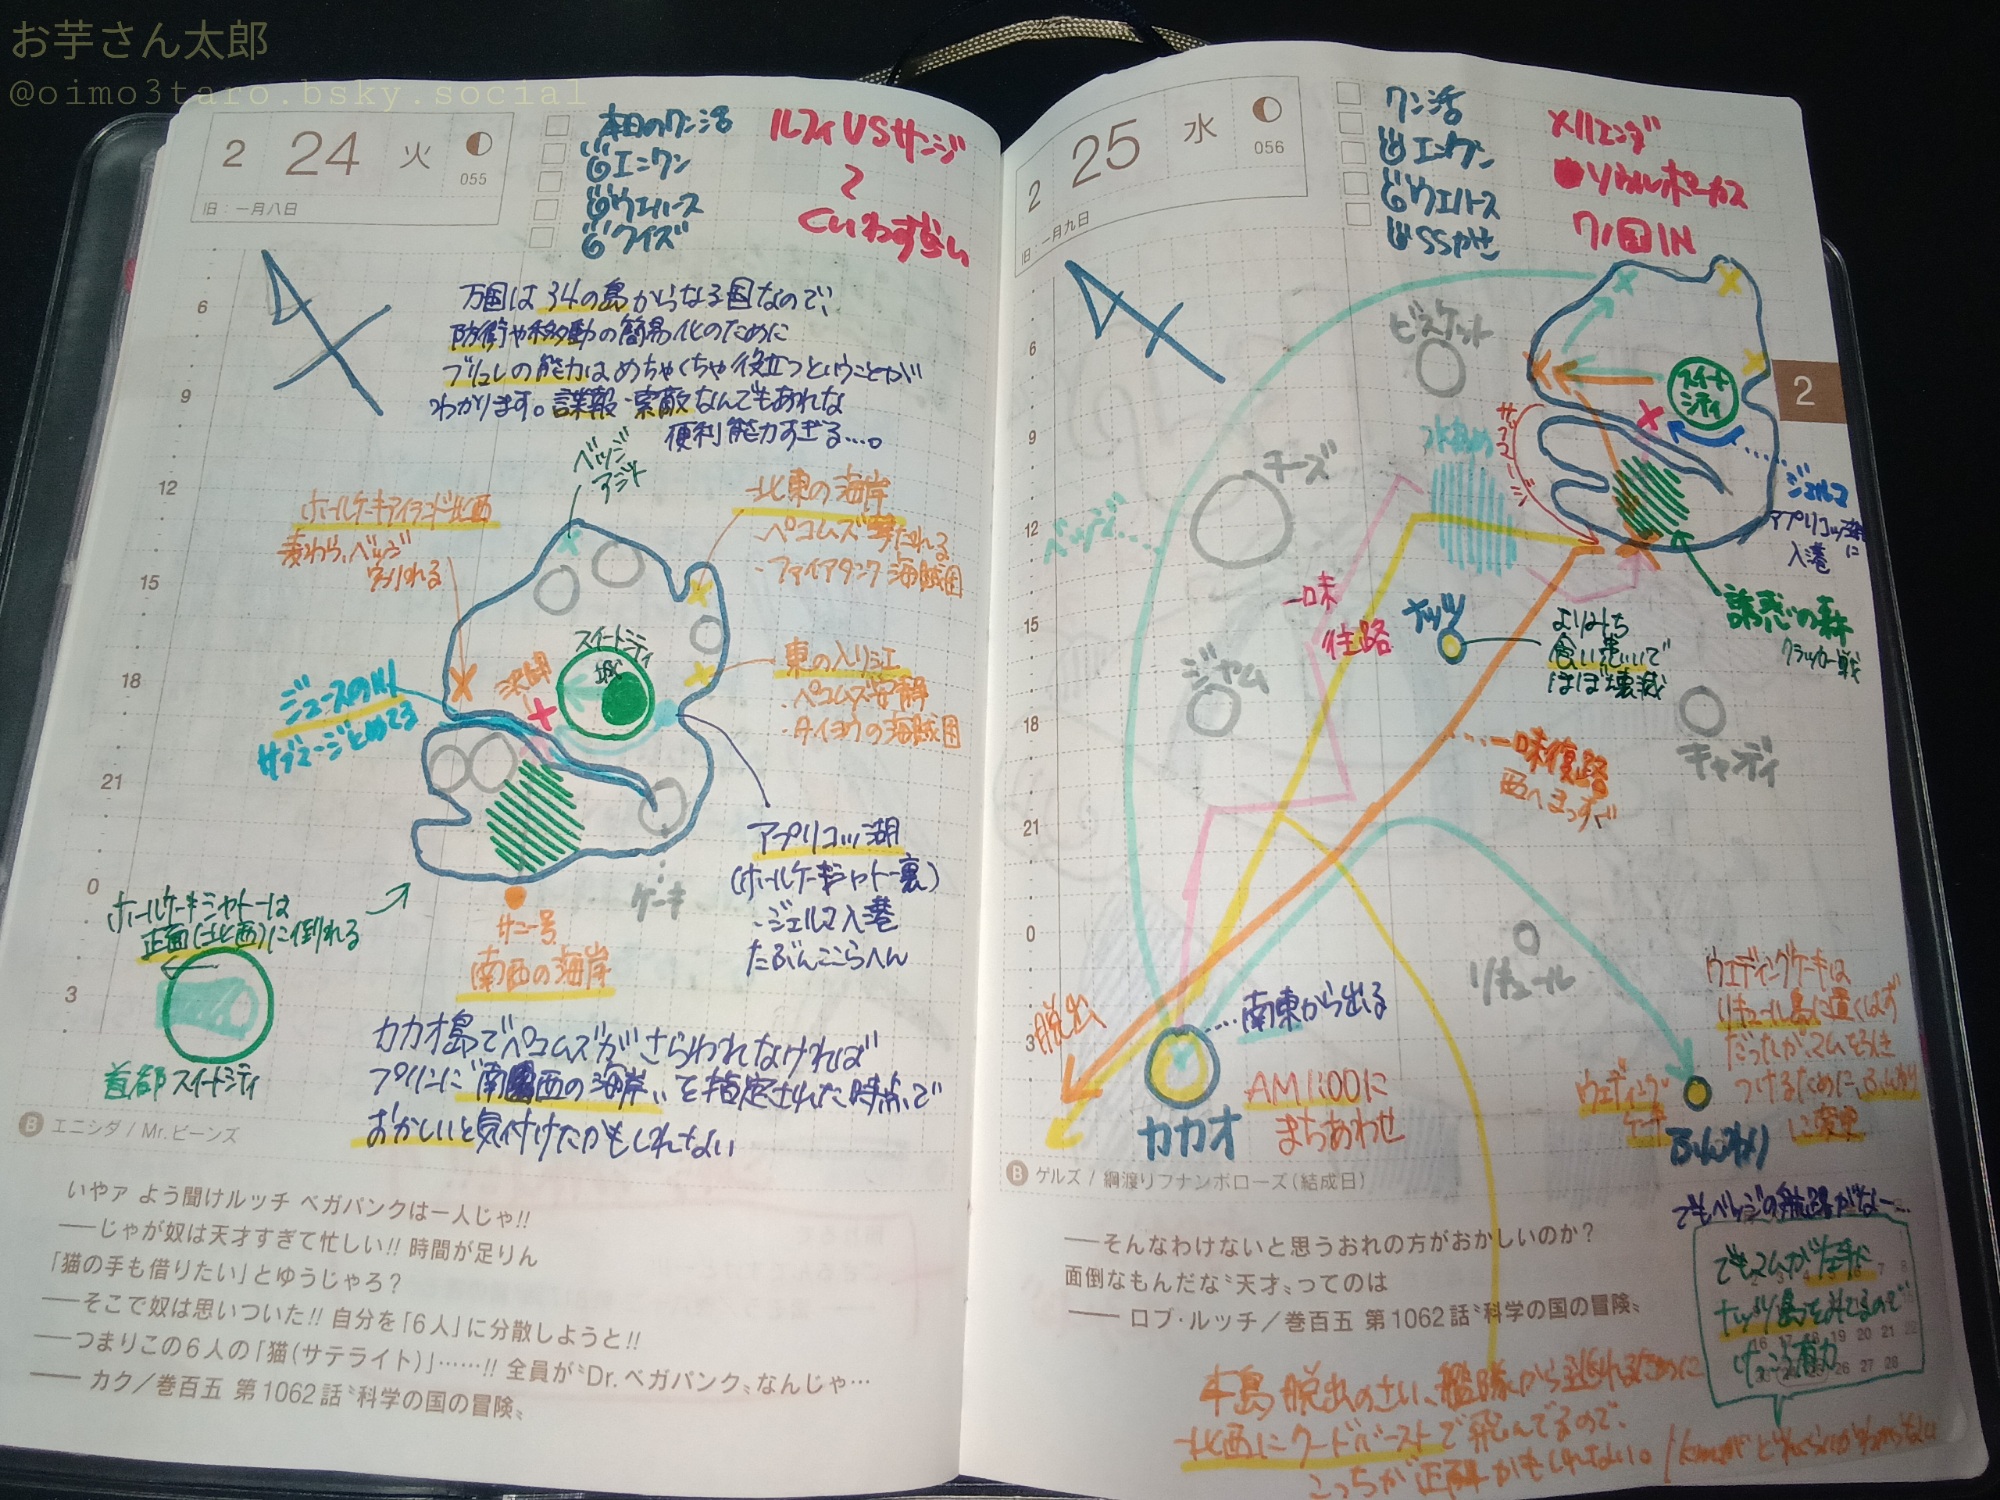 お芋さん太郎
@oimo3taro.bsky.social
2 24 火
055
旧：一月八日
本日のワン活
エニワン
ウエハース
クイズ
ルフィVSサンジ
と
くいわずらい
万国は34の島からなる国なので、
防衛や移動の簡易化のために
ブリュレの能力はめちゃくちゃ役立つということが
わかります。諜報・索敵なんでもあれな
便利能力すぎる…。
ベッジ
アジト
ホールケーキアイランド北西
麦わら、ベッジ
北東の海岸
・ペコムズ撃たれる
・ファイアタンク海賊団
スイートシティ
決闘
東の入り江
・ペコムズ安静
・タイヨウの海賊団
ジュースの川
サブマージとめてる
アプリコッ湖
(ホールケーキシャトー裏)
・ジェルマ入港
たぶんここらへん
ケーキ
サニー号
南西の海岸
ホールケーキシャトーは
正面(北西)に倒れる
首都スイートシティ
カカオ島でペコムズがさらわれなければ
プリンに"南西の海岸"を指定された時点で
おかしいと気付けたかもしれない
6
9
12
15
18
21
0
3
B エニシダ / Mr.ビーンズ
いやァ よう聞けルッチ ベガパンクは一人じゃ!!
──じゃが奴は天才すぎて忙しい!! 時間が足りん
「猫の手も借りたい」とゆうじゃろ？
──そこで奴は思いついた!! 自分を「6人」に分散しようと!!
──つまりこの6人の「猫(サテライト)」……!! 全員が〝Dr.ベガパンク〟なんじゃ…
── カク／巻百五 第1062話〝科学の国の冒険〟
2 25 水
056
旧：一月九日
ワン活
エニワン
ウエハース
メリエンダ
ソウルポーカス
ワノ国IN
2
ビスケット
チーズ
水あめ
スイート
シティ
サブマージ
ジェルマ
アプリコッ湖に
入港
誘惑の森
クラッカー戦
ベッジ…
一味
往路
ナッツ
よりみち
食い患いで
ほぼ壊滅
ジャム
キャンディ
…一味復路
西へまっすぐ
リキュール
脱出
…南東から出る
カカオ
AM1:00に
まちあわせ
ウェディング
ケーキ
ふんわり
ウエディングケーキは
リキュール島に置くはず
だったが、マムをひき
つけるために、ふんわり
に変更
でもベッジの航路がなー…
でもマムが左手に
ナッツ島をみてるので
けっこう有力
6
9
12
15
18
21
0
3
B ゲルズ / 綱渡りフナンボローズ(結成日)
──そんなわけないと思うおれの方がおかしいのか？
面倒なもんだな〝天才〟ってのは
── ロブ・ルッチ／巻百五 第1062話〝科学の国の冒険〟
本島脱出のさい、艦隊から逃れるために
北西にクードバーストで飛んでるので、
こっちが正解かもしれない。